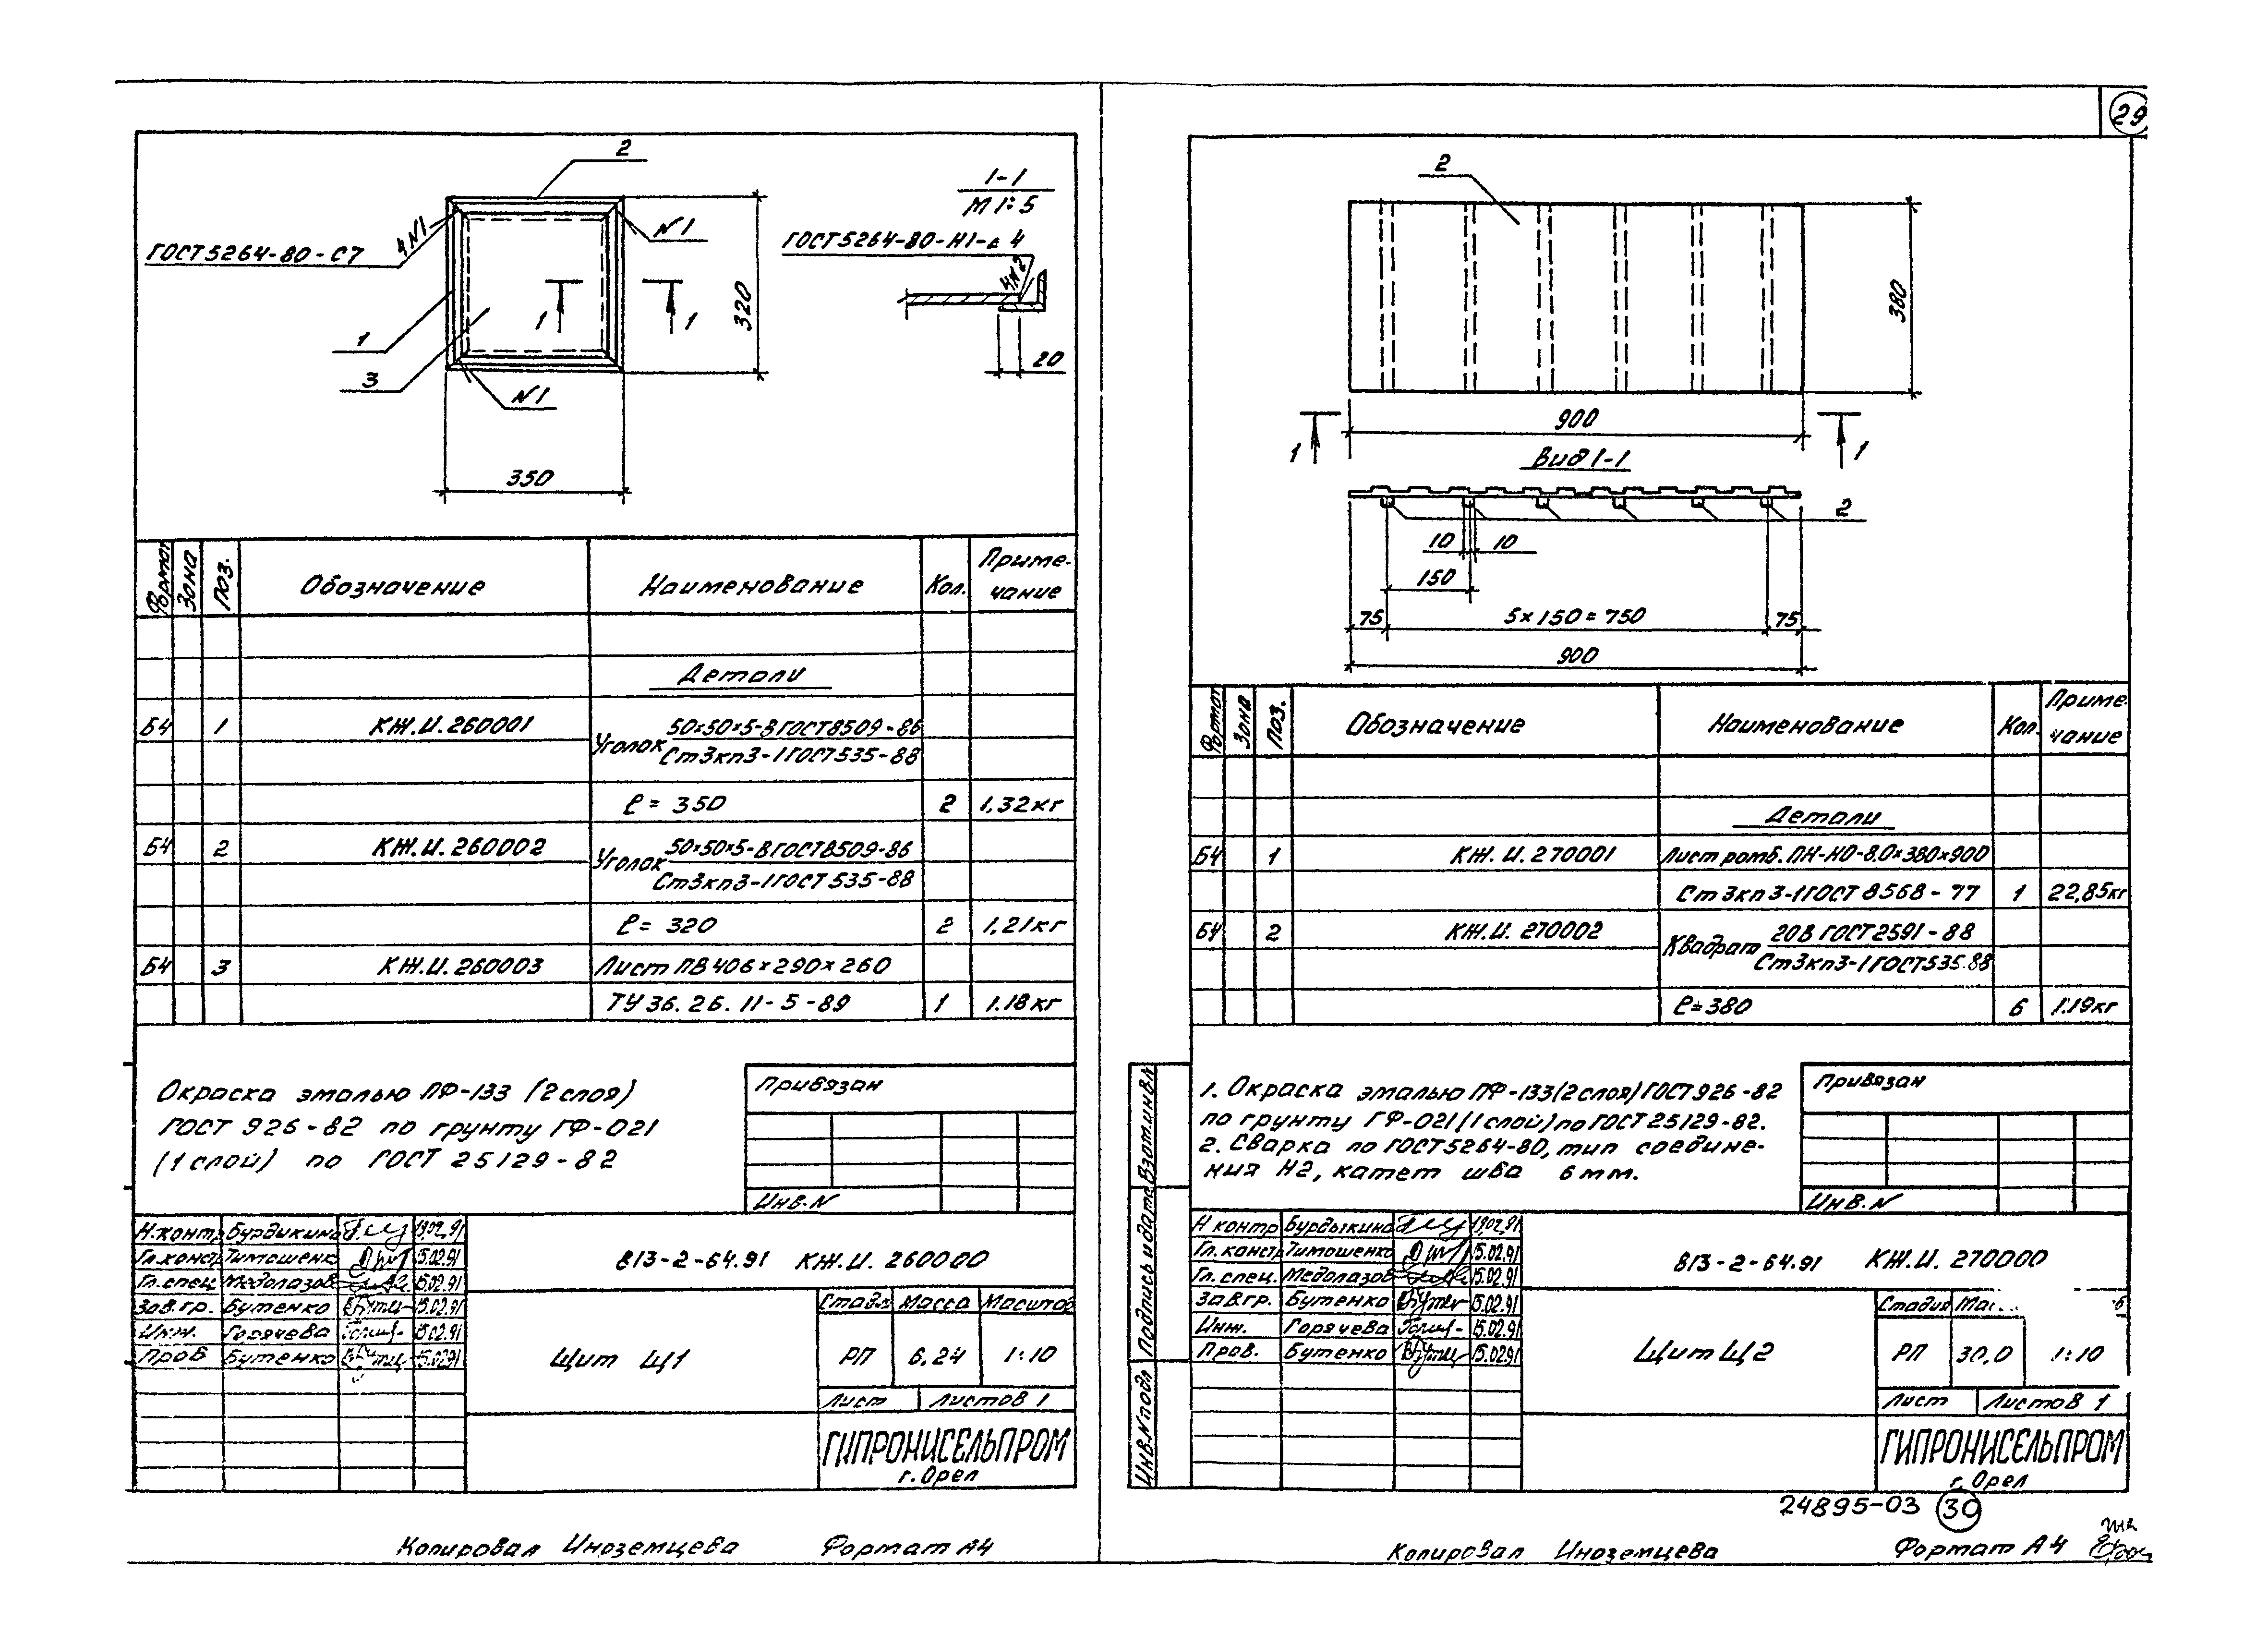 29
2
ГОСТ5264-80-С7
4 N1
N1
1
3
1
1
N1
320
350
1-1
М 1:5
ГОСТ5264-80-Н1-⊿ 4
4 N2
20
Формат Зона Поз. Обозначение Наименование Кол. Примечание
Детали
Б4 1 КЖ.И.260001 Уголок 50×50×5-В ГОСТ8509-86
Ст3кп3-1 ГОСТ535-88
ℓ= 350 2 1,32кг
Б4 2 КЖ.И.260002 Уголок 50×50×5-В ГОСТ8509-86
Ст3кп3-1 ГОСТ535-88
ℓ= 320 2 1,21кг
Б4 3 КЖ.И.260003 Лист ПВ 406×290×260
ТУ 36.26.11-5-89 1 1.18кг
Окраска эмалью ПФ-133 (2 слоя)
ГОСТ 926-82 по грунту ГФ-021
(1 слой) по ГОСТ 25129-82
Привязан
Инв.N
Н.контр Бурдыкина 19.02.91
Гл.констр Тимошенко 15.02.91
Гл.спец Медолазов 15.02.91
Зав.гр. Бутенко 15.02.91
Инж. Горячева 15.02.91
Пров Бутенко 15.02.91
813-2-64.91 КЖ.И. 260000
Щит Щ1
Стадия Масса Масштаб
РП 6,24 1:10
Лист Листов 1
ГИПРОНИСЕЛЬПРОМ
г.Орел
Копировал Иноземцева Формат А4
2
380
900
1 1
Вид 1-1
2
10 10
150
75 5×150=750 75
900
Формат Зона Поз. Обозначение Наименование Кол. Примечание
Детали
Б4 1 КЖ.И.270001 Лист ромб. ПН-НО-8.0×380×900
Ст 3кп 3-1 ГОСТ 8568-77 1 22,85кг
Б4 2 КЖ.И.270002 Квадрат 20В ГОСТ2591-88
Ст3кп3-1 ГОСТ535-88
ℓ=380 6 1.19кг
1. Окраска эмалью ПФ-133(2 слоя) ГОСТ926-82
по грунту ГФ-021(1 слой) по ГОСТ 25129-82.
2. Сварка по ГОСТ5264-80, тип соедине-
ния Н2, катет шва 6 мм.
Привязан
Инв.N
Взам.инв.N
Подпись и дата
Инв.N подл
Н контр Бурдыкина 19.02.91
Гл.констр Тимошенко 15.02.91
Гл.спец. Медолазов 15.02.91
Зав гр. Бутенко 15.02.91
Инж. Горячева 15.02.91
Пров. Бутенко 15.02.91
813-2-64.91 КЖ.И. 270000
Щит Щ2
Стадия Мас
РП 30,0 1:10
Лист Листов 1
ГИПРОНИСЕЛЬПРОМ
г. Орел
24895-03 30
Копировал Иноземцева Формат А4